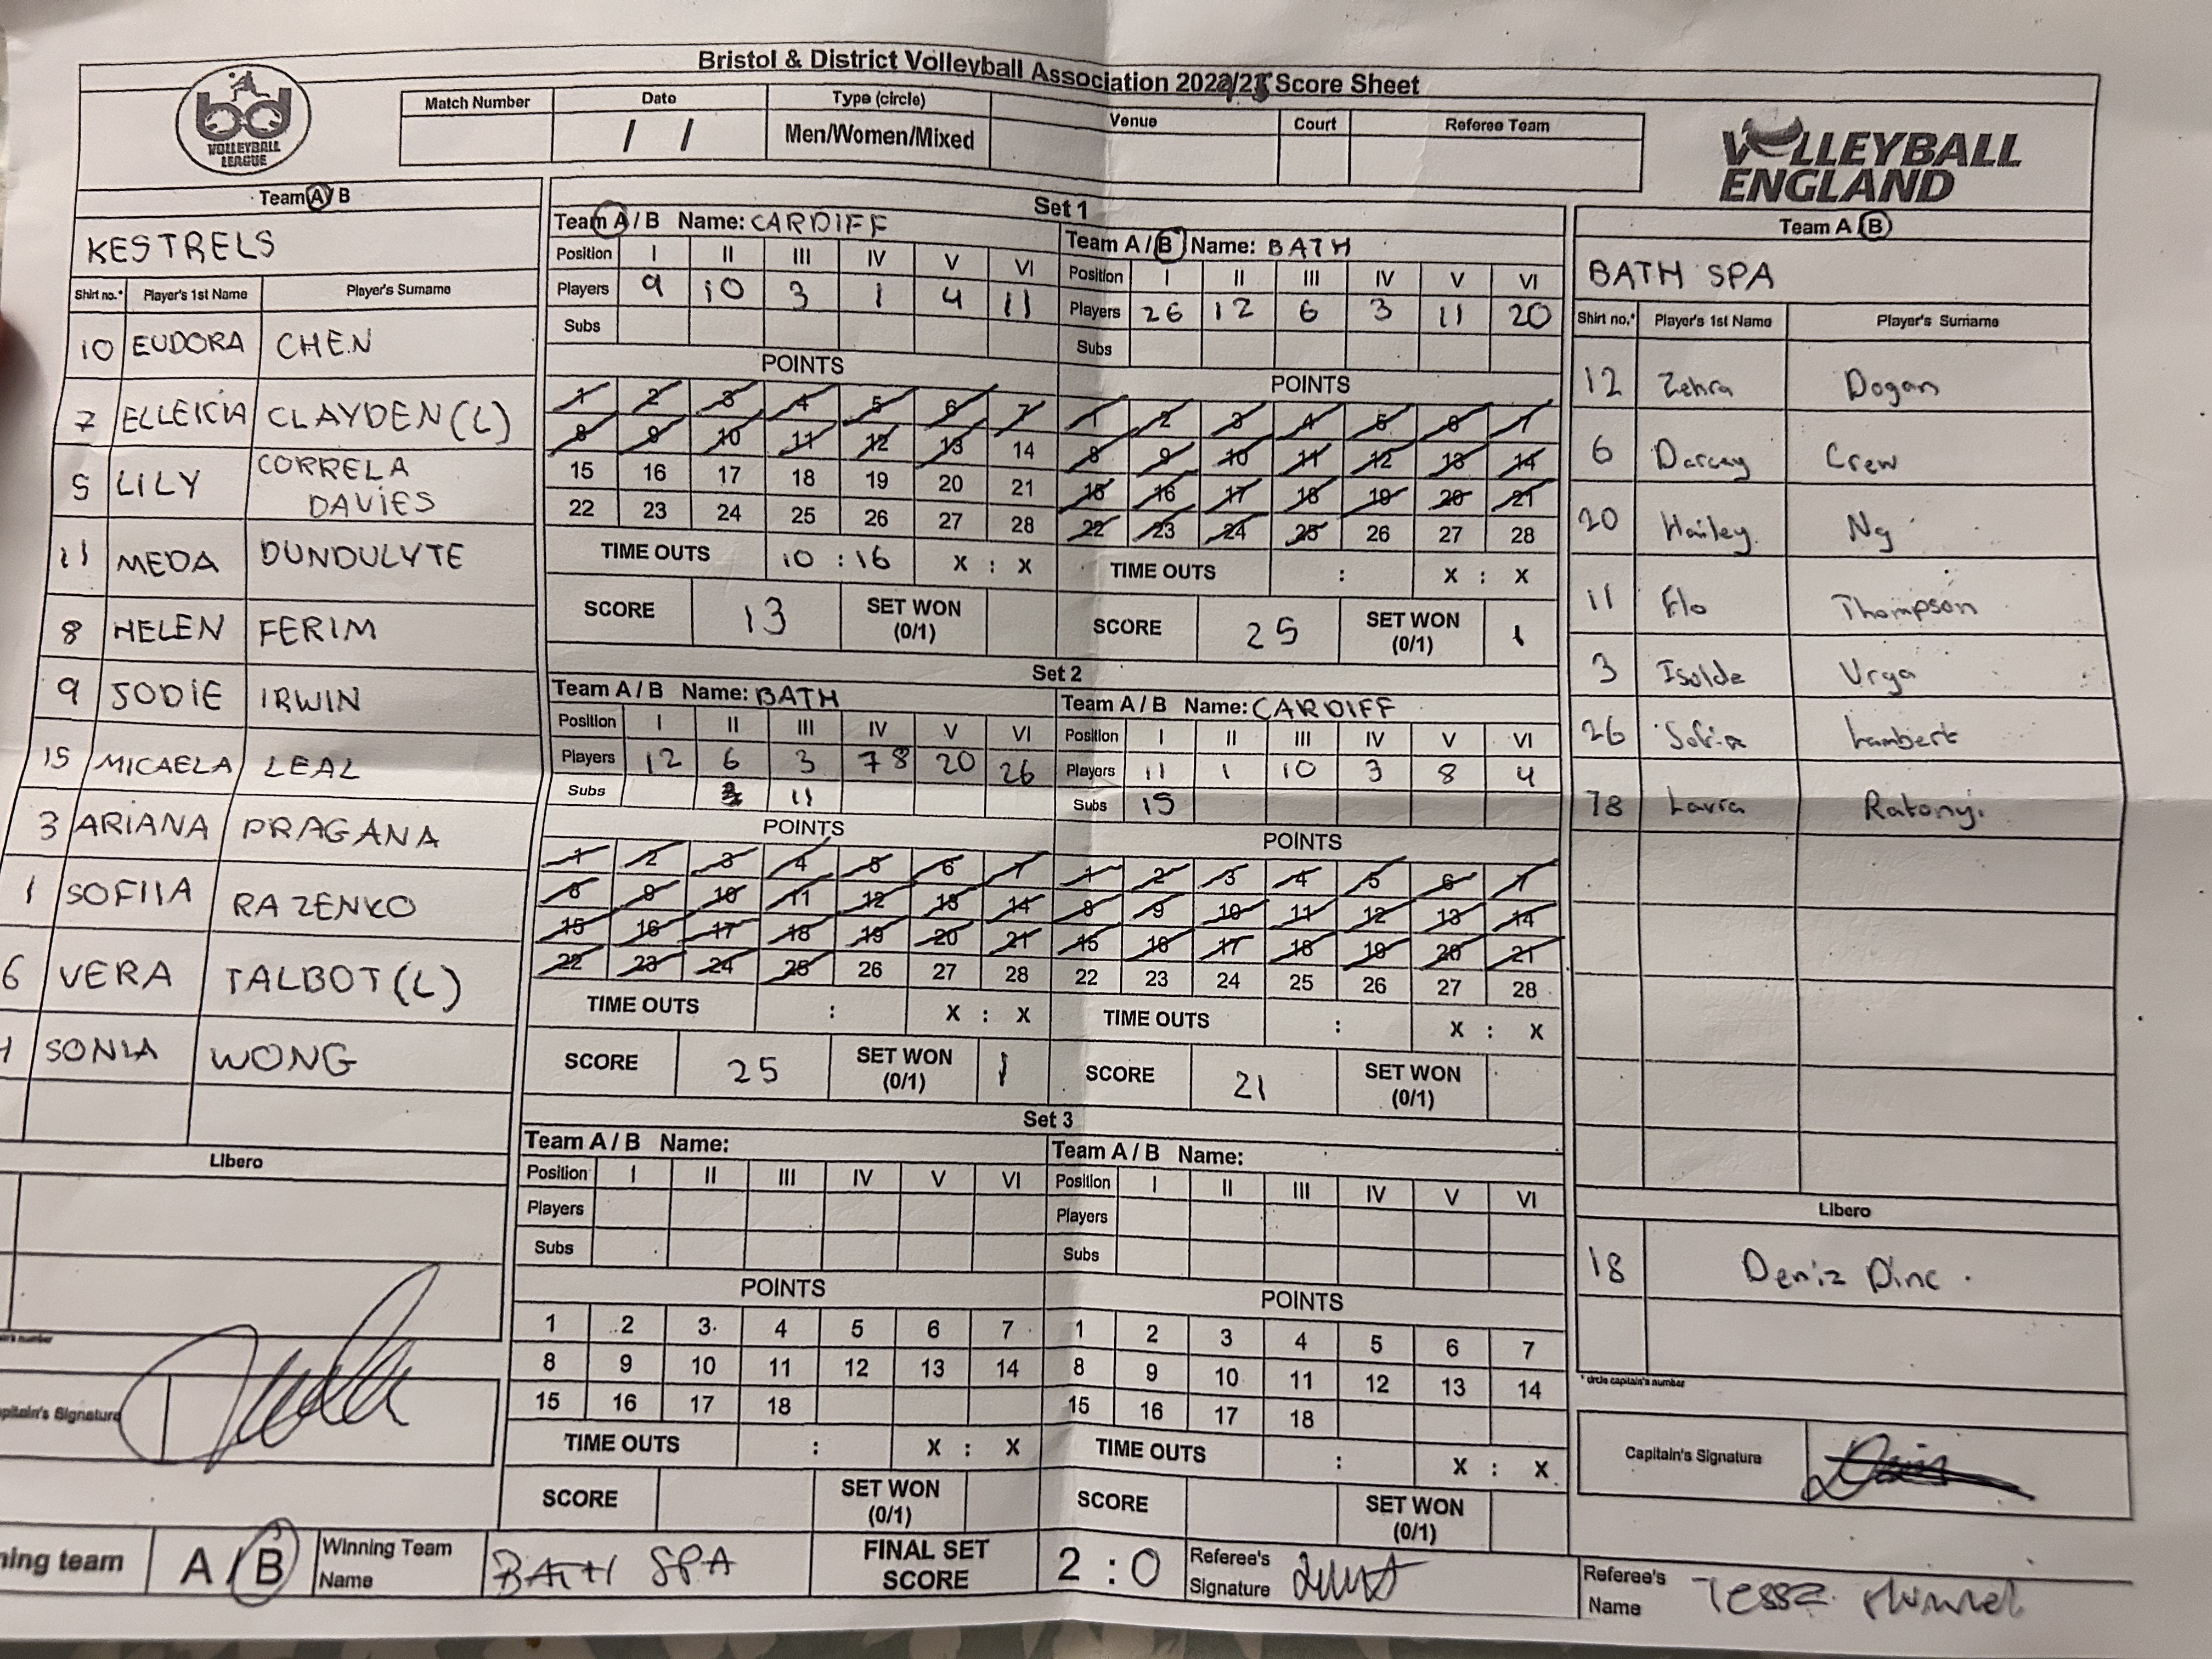 Bristol & District Volleyball Association 2024/25 Score Sheet
bd
VOLLEYBALL
LEAGUE
Match Number Date Type (circle) Venue Court Referee Team
/ / Men/Women/Mixed
VOLLEYBALL
ENGLAND
Team A / B
KESTRELS
Shirt no.* Player's 1st Name Player's Surname
10 EUDORA CHEN
7 ELLEICIA CLAYDEN (L)
5 LILY CORRELA
DAVIES
11 MEDA DUNDULYTE
8 HELEN FERIM
9 JODIE IRWIN
15 MICAELA LEAL
3 ARIANA PRAGANA
1 SOFIIA RAZENKO
6 VERA TALBOT (L)
SONIA WONG
Libero
Signature
Set 1
Team A / B Name: CARDIFF
Position I II III IV V VI
Players 9 10 3 1 4 11
Subs
POINTS
1 2 3 4 5 6 7
8 9 10 11 12 13 14
15 16 17 18 19 20 21
22 23 24 25 26 27 28
TIME OUTS 10 : 16 X : X
SCORE 13 SET WON
(0/1)
Team A / B Name: BATH
Position I II III IV V VI
Players 26 12 6 3 11 20
Subs
POINTS
1 2 3 4 5 6 7
8 9 10 11 12 13 14
15 16 17 18 19 20 21
22 23 24 25 26 27 28
TIME OUTS : X : X
SCORE 25 SET WON
(0/1) 1
Set 2
Team A / B Name: BATH
Position I II III IV V VI
Players 12 6 3 78 20 26
Subs 11
POINTS
1 2 3 4 5 6 7
8 9 10 11 12 13 14
15 16 17 18 19 20 21
22 23 24 25 26 27 28
TIME OUTS : X : X
SCORE 25 SET WON
(0/1) 1
Team A / B Name: CARDIFF
Position I II III IV V VI
Players 11 1 10 3 8 4
Subs 15
POINTS
1 2 3 4 5 6 7
8 9 10 11 12 13 14
15 16 17 18 19 20 21
22 23 24 25 26 27 28
TIME OUTS : X : X
SCORE 21 SET WON
(0/1)
Set 3
Team A / B Name:
Position I II III IV V VI
Players
Subs
POINTS
1 2 3 4 5 6 7
8 9 10 11 12 13 14
15 16 17 18
TIME OUTS : X : X
SCORE SET WON
(0/1)
Team A / B Name:
Position I II III IV V VI
Players
Subs
POINTS
1 2 3 4 5 6 7
8 9 10 11 12 13 14
15 16 17 18
TIME OUTS : X : X
SCORE SET WON
(0/1)
Team A / B
BATH SPA
Shirt no.* Player's 1st Name Player's Surname
12 Zehra Dogan
6 Darcey Crew
20 Hailey Ng
11 Flo Thompson
3 Isolde Urga
26 Sofia Lambert
78 Laura Ratonyi
Libero
18 Deniz Dinc
* circle captain's number
Capitain's Signature
team A / B Winning Team
Name BATH SPA FINAL SET
SCORE 2 : 0 Referee's
Signature Referee's
Name Tessa